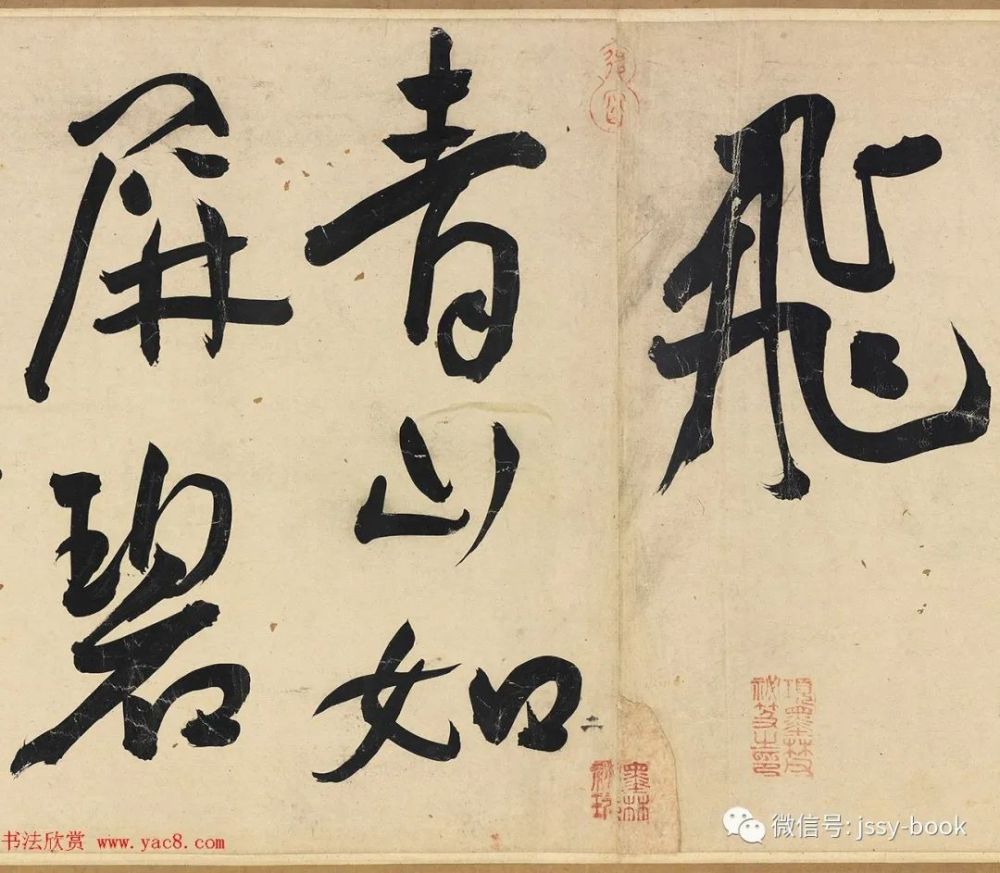 飛
青山如
屏碧
二
墨林
書法欣赏 www.yac8.com
微信号: jssy-book